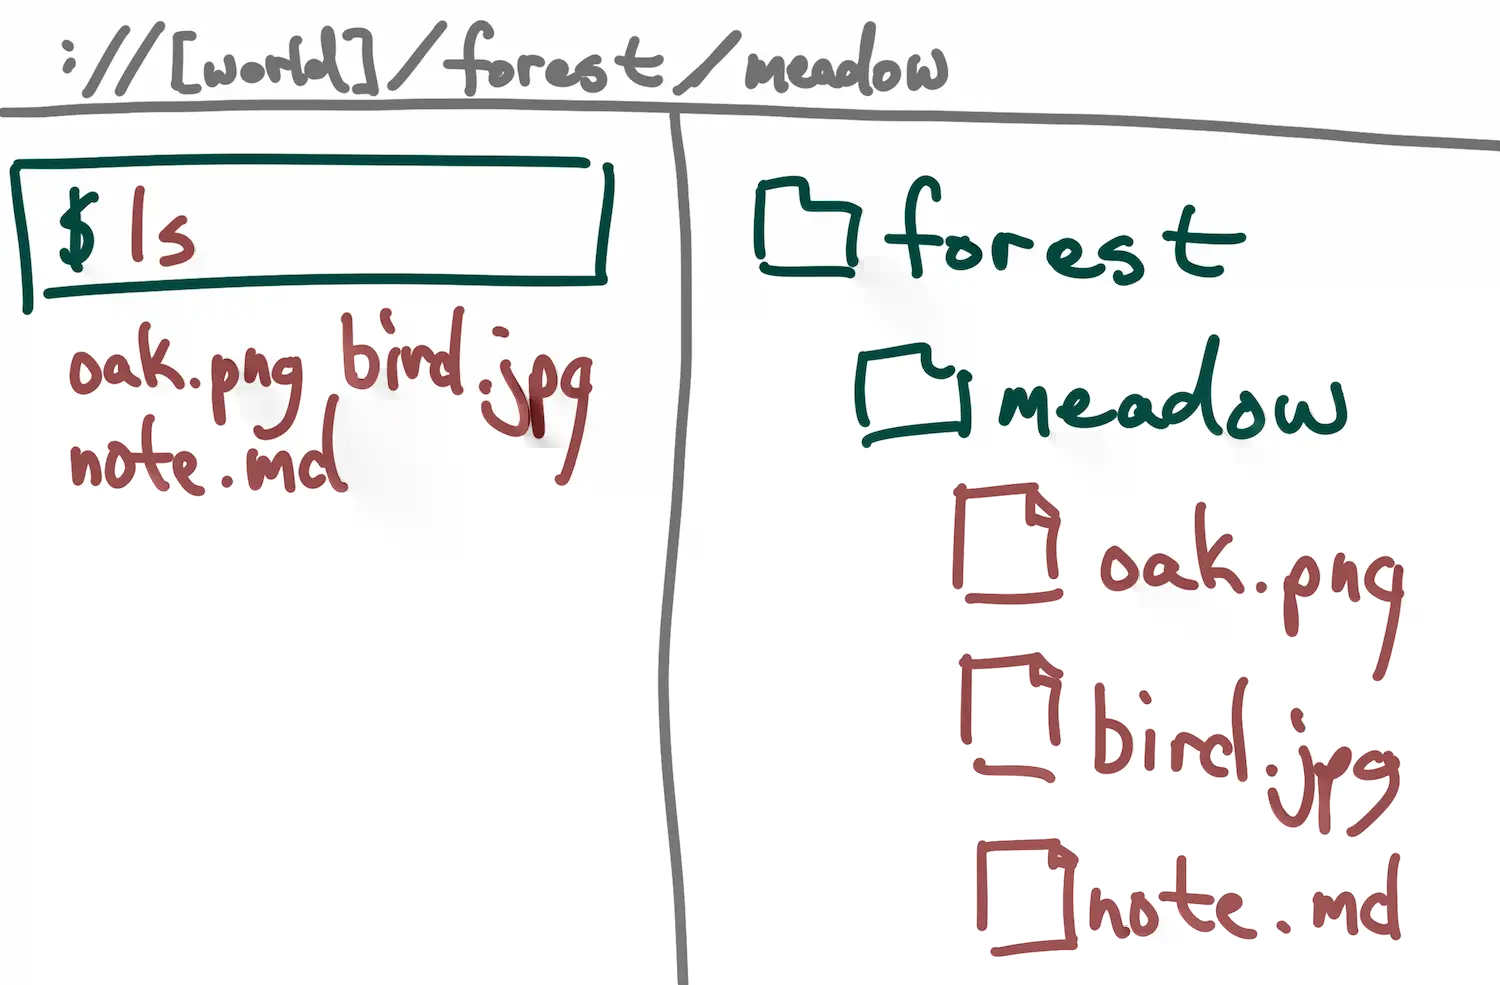 ://[world]/forest/meadow
$ ls
oak.png bird.jpg
note.md
forest
meadow
oak.png
bird.jpg
note.md